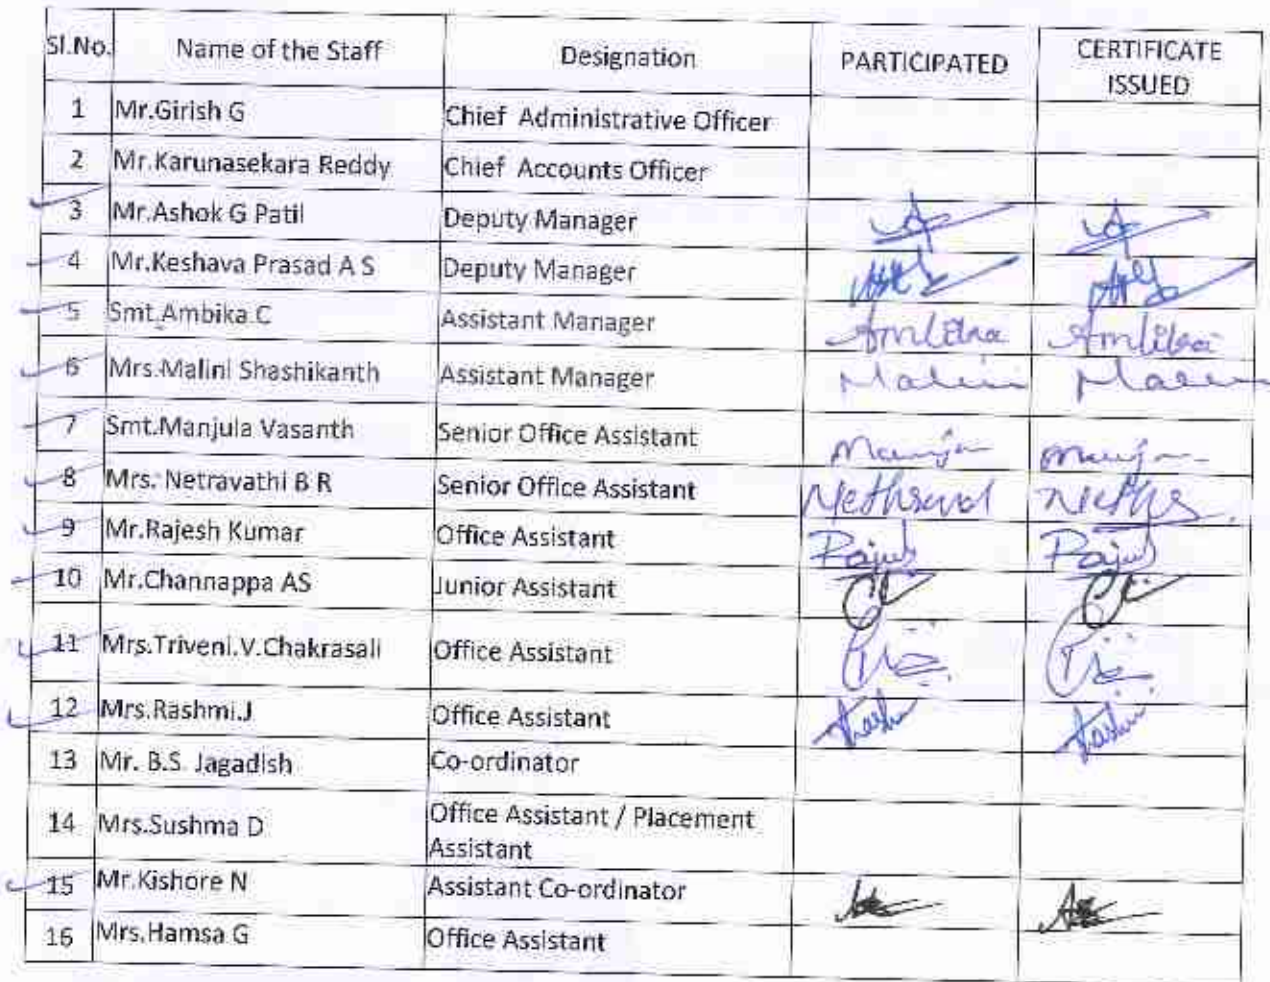 Sl.No. Name of the Staff Designation PARTICIPATED CERTIFICATE ISSUED
1 Mr.Girish G Chief Administrative Officer
2 Mr.Karunasekara Reddy Chief Accounts Officer
3 Mr.Ashok G Patil Deputy Manager
4 Mr.Keshava Prasad A S Deputy Manager
5 Smt.Ambika C Assistant Manager
6 Mrs.Malini Shashikanth Assistant Manager Malini
7 Smt.Manjula Vasanth Senior Office Assistant
8 Mrs. Netravathi B R Senior Office Assistant
9 Mr.Rajesh Kumar Office Assistant
10 Mr.Channappa AS Junior Assistant
11 Mrs.Triveni.V.Chakrasali Office Assistant
12 Mrs.Rashmi.J Office Assistant
13 Mr. B.S. Jagadish Co-ordinator
14 Mrs.Sushma D Office Assistant / Placement
Assistant
15 Mr.Kishore N Assistant Co-ordinator
16 Mrs.Hamsa G Office Assistant